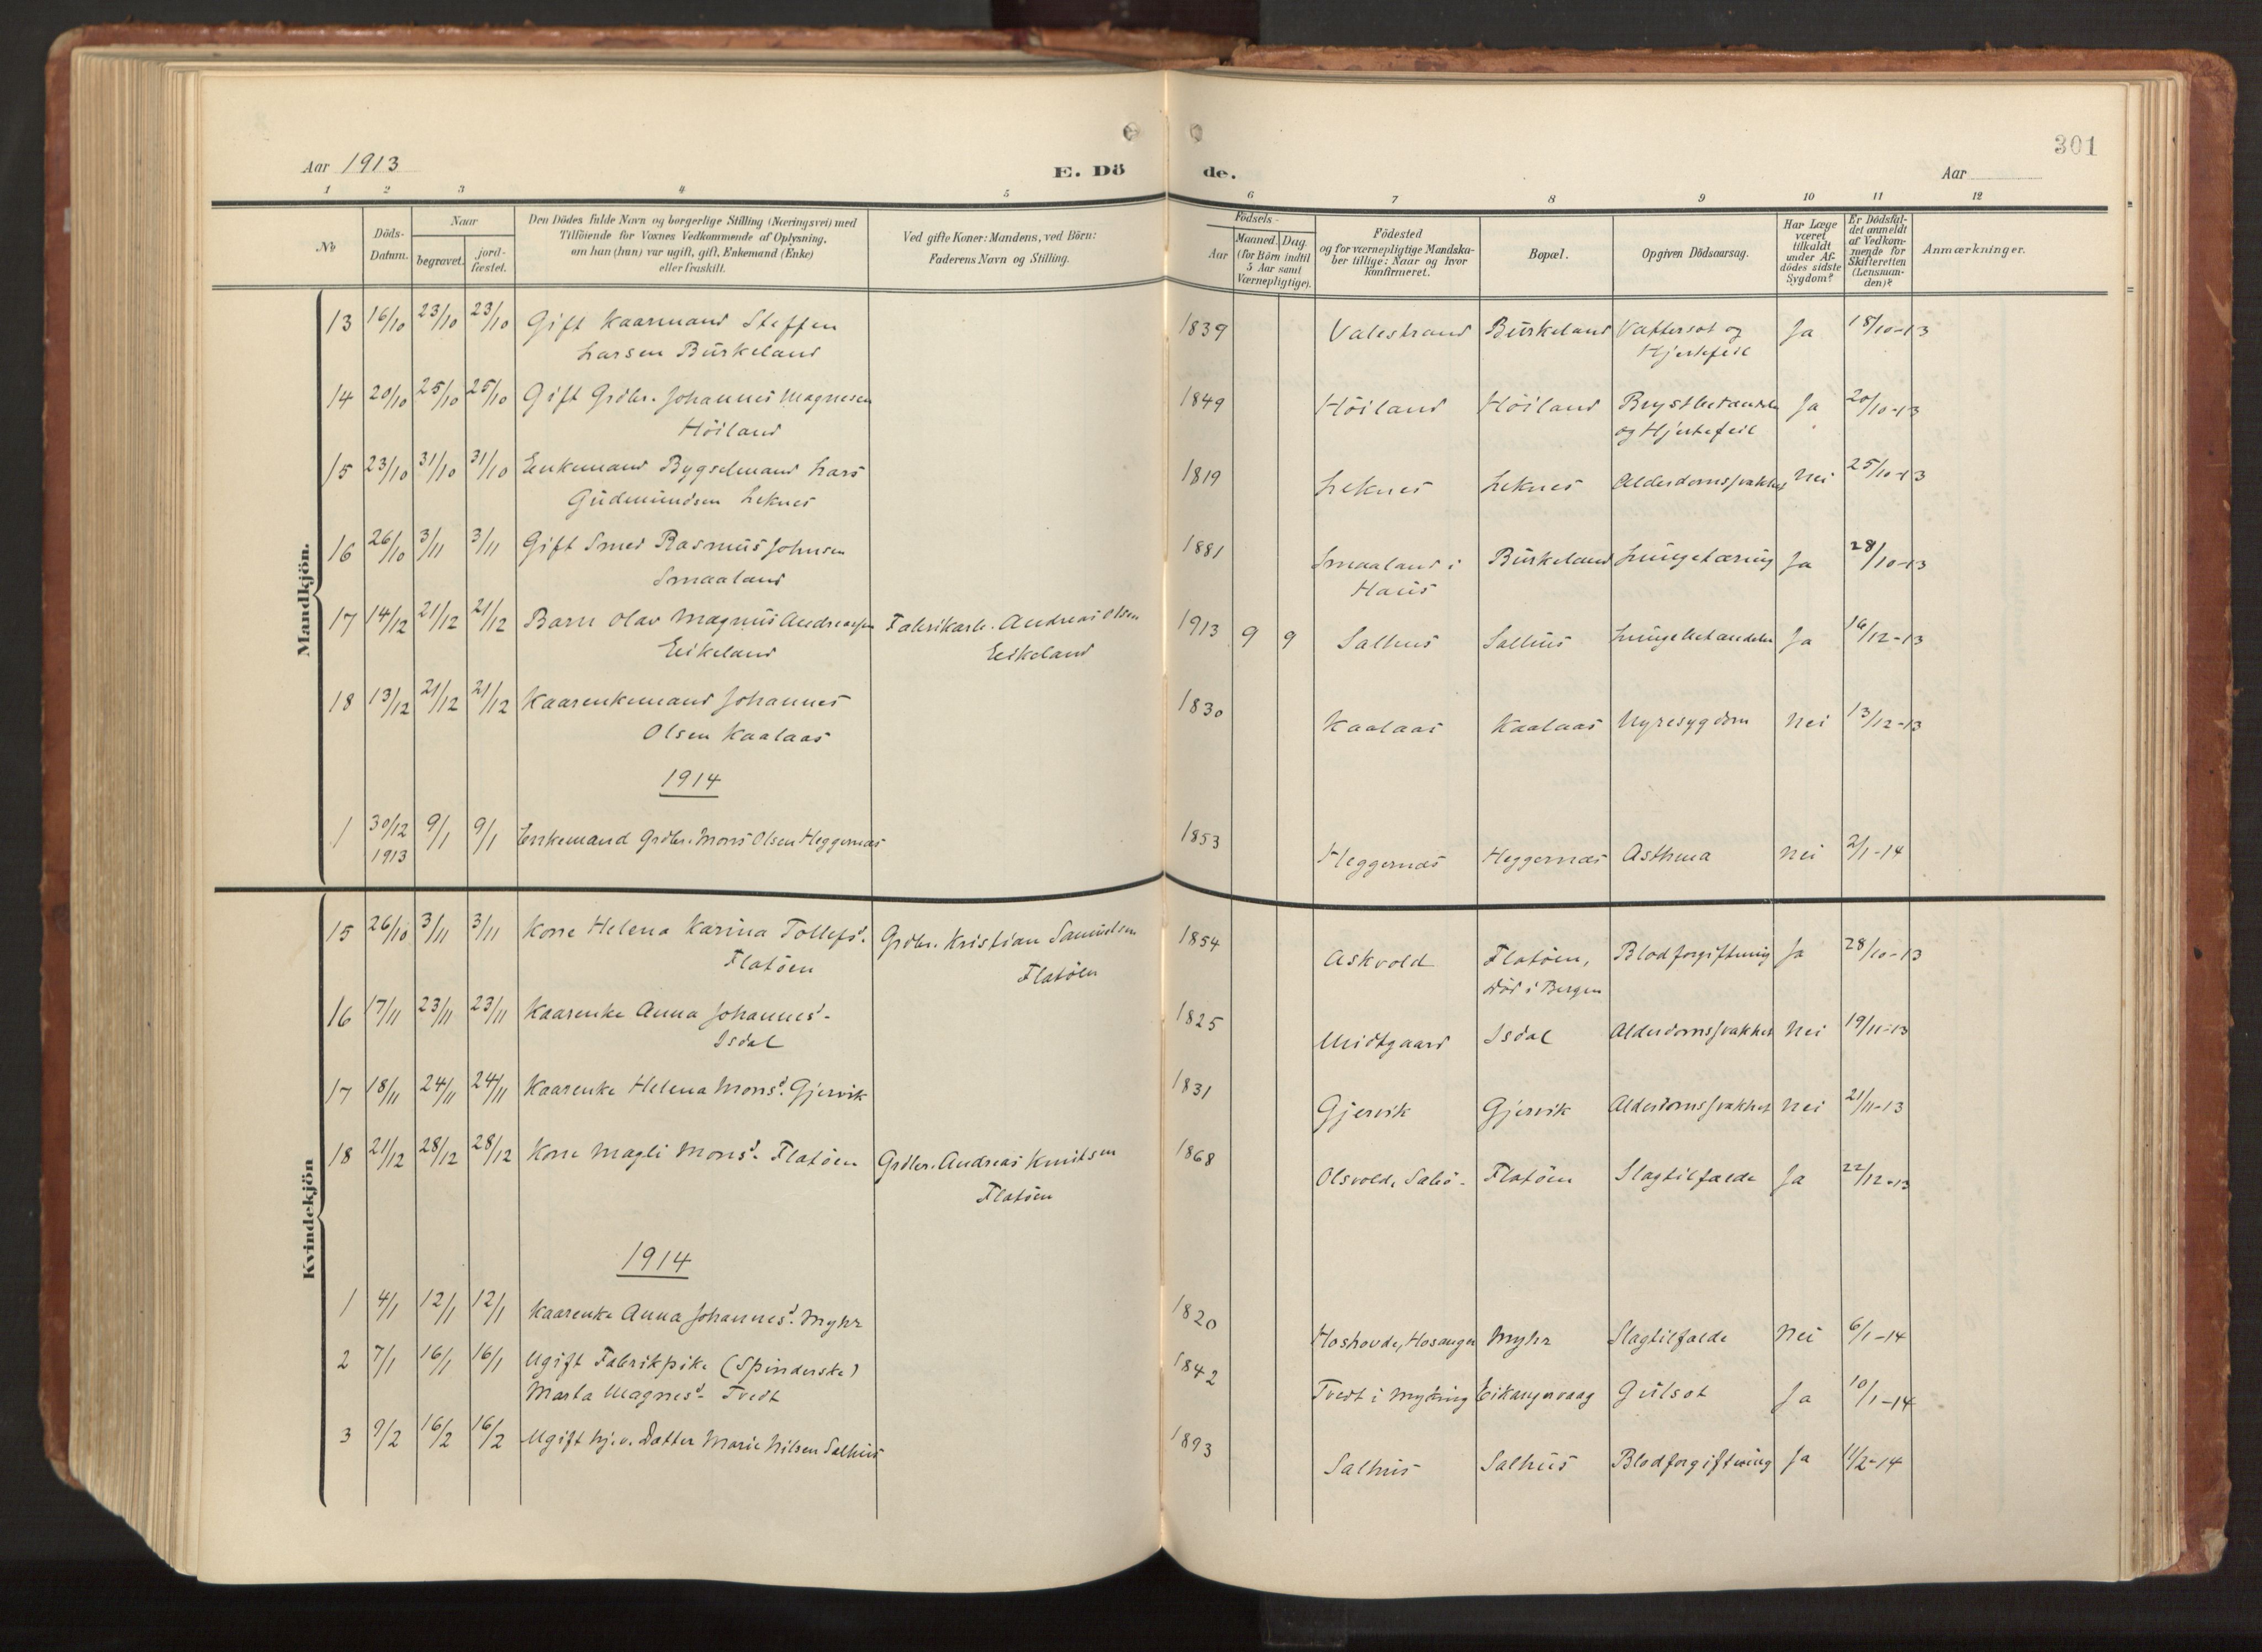 301
Aar 1913
E. Dö
de.
Aar
1 2 3 4 5 6 7 8 9 10 11 12
No
Döds-
Datum.
Naar
begravet.
jord-
fæstet.
Den Dödes fulde Navn og borgerlige Stilling (Næringsvei) med
Tilföiende for Voxnes Vedkommende af Oplysning,
om han (hun) var ugift, gift, Enkemand (Enke)
eller fraskilt.
Ved gifte Koner: Mandens, ved Börn:
Faderens Navn og Stilling.
Födsels-
Aar
Maaned. Dag.
(for Börn indtil
5 Aar samt
Værnepligtige).
Födested
og for værnepligtige Mandska-
ber tillige: Naar og hvor
konfirmeret.
Bopæl.
Opgiven Dödsaarsag.
Har Læge
været
tilkaldt
under Af-
dödes sidste
Sygdom?
Er Dödsfal-
det anmeldt
af Vedkom-
mende for
Skifteretten
(Lensman-
den)?
Anmærkninger.
Mandkjön.
13 16/10 23/10 23/10 Gift Kaarmand Steffen 1839 Valestrand Burkeland Vattersot og Ja 18/10-13
Larsen Burkeland Hjertefeil
14 20/10 25/10 25/10 Gift Grdbr. Johannes Magnesen 1849 Höiland Höiland Brystbetændelse Ja 20/10-13
Höiland og Hjertefeil
15 23/10 31/10 31/10 Enkemand Bygselmand Lars 1819 Leknes Leknes Alderdomssvakhet Nei 25/10-13
Gudmundsen Leknes
16 26/10 3/11 3/11 Gift Smed Rasmus Johnsen 1881 Smaaland i Burkeland Lungetæring Ja 28/10-13
Smaaland Haus
17 14/12 21/12 21/12 Barn Olav Magnus Andreassen Fabrikarb. Andreas Olsen 1913 9 9 Salhus Salhus Lungebetændelse Ja 16/12-13
Eikeland Eikeland
18 13/12 21/12 21/12 Kaarenkemand Johannes 1830 Kaalaas Kaalaas Nyresygdom Nei 13/12-13
Olsen Kaalaas
1914
1 30/12 9/1 9/1 Enkemand Grdbr. Mons Olsen Heggernæs 1853 Heggernæs Heggernæs Asthma Nei 2/1-14
1913
Kvindekjön
15 26/10 3/11 3/11 Kone Helena Karina Tollefsd. Grdbr. Kristian Samuelsen 1854 Askvold Flatöen, Blodforgiftning Ja 28/10-13
Flatöen Flatöen död i Bergen
16 17/11 23/11 23/11 Kaarenke Anna Johannesd. 1825 Midtgaard Isdal Alderdomssvakhet Nei 19/11-13
Isdal
17 18/11 24/11 24/11 Kaarenke Helena Monsd. Gjervik 1831 Gjervik Gjervik Alderdomssvakhet Nei 21/11-13
18 21/12 28/12 28/12 Kone Magli Monsd. Flatöen Grdbr. Andreas Knutsen 1868 Olsvold, Sæbö- Flatöen Slagtilfælde Ja 22/12-13
Flatöen
1914
1 4/1 12/1 12/1 Kaarenke Anna Johannesd. Myhr 1820 Hoshovde, Hosanger Myhr Slagtilfælde Nei 6/1-14
2 7/1 16/1 16/1 Ugift Fabrikpike (Spinderske) 1842 Tvedt i Myking Eikangervaag Gulsot Ja 10/1-14
Marta Magnesd. Tvedt
3 9/2 16/2 16/2 Ugift hj.v. Datter Marie Nilsen Salhus 1893 Salhus Salhus Blodforgiftning Ja 11/2-14